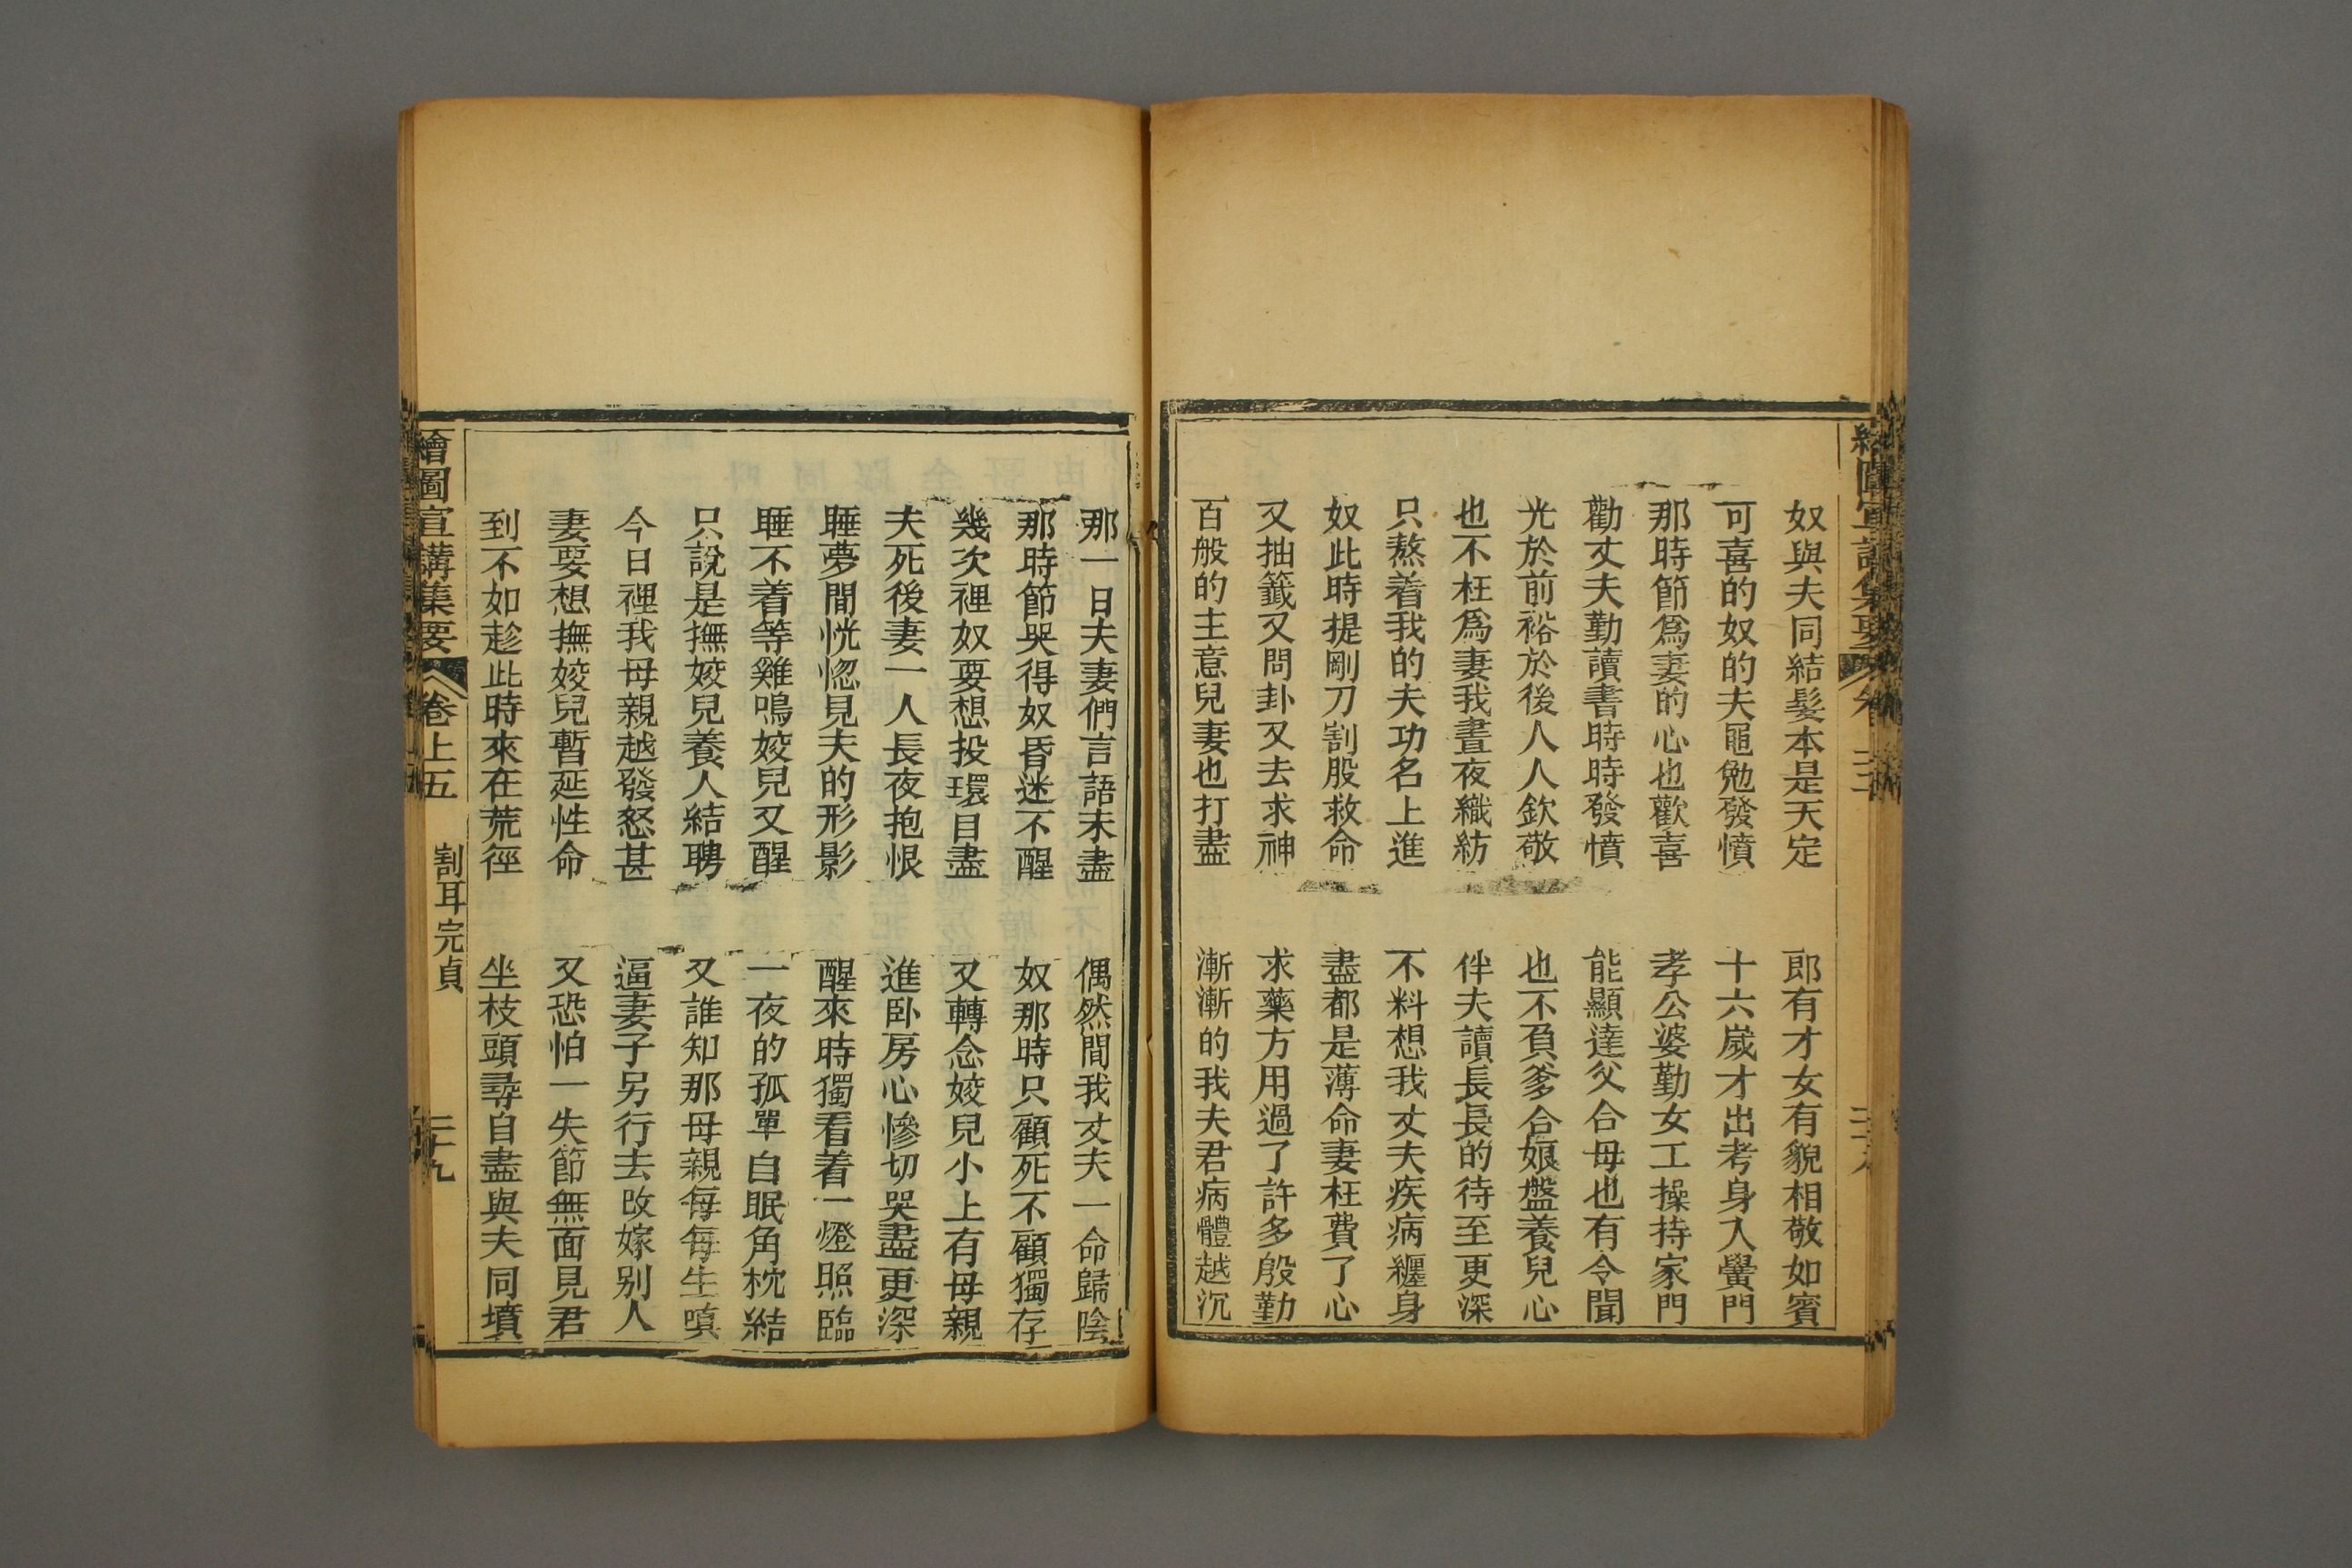 奴與夫同結髮本是天定　郎有才女有貌相敬如賓
可喜的奴的夫黽勉發憤　十六嵗才出考身入黌門
那時節爲妻的心也歡喜　孝公婆勤女工操持家門
勸丈夫勤讀書時時發憤　能顯達父合母也有令聞
光於前裕於後人人欽敬　也不負爹合娘盤養兒心
也不枉爲妻我晝夜織紡　伴夫讀長長的待至更深
只熬着我的夫功名上進　不料想我丈夫疾病纒身
奴此時提剛刀割股救命　盡都是薄命妻枉費了心
又抽籤又問卦又去求神　求藥方用過了許多殷勤
百般的主意兒妻也打盡　漸漸的我夫君病體越沉
那一日夫妻們言語未盡　偶然間我丈夫一命歸陰
那時節哭得奴昏迷不醒　奴那時只顧死不顧獨存
幾次裡奴要想投環自盡　又轉念姣兒小上有母親
夫死後妻一人長夜抱恨　進卧房心慘切哭盡更深
睡夢間恍惚見夫的形影　醒來時獨看着一燈照臨
睡不着等雞鳴姣兒又醒　一夜的孤單自眠角枕結
只說是撫姣兒養人結聘　又誰知那母親每每生嗔
今日裡我母親越發怒甚　逼妻子另行去改嫁别人
妻要想撫姣兒暫延性命　又恐怕一失節無面見君
到不如趁此時來在荒徑　坐枝頭尋自盡與夫同墳
繪圖宣講集要　卷上五　割耳完貞　二十九